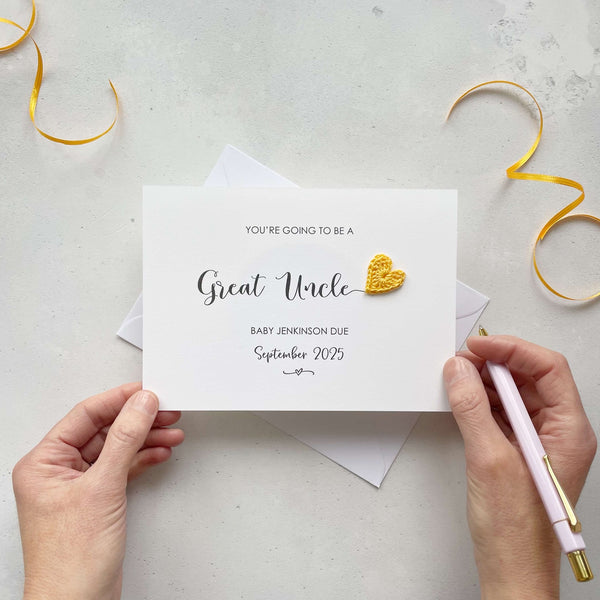 YOU'RE GOING TO BE A
Great Uncle
BABY JENKINSON DUE
September 2025